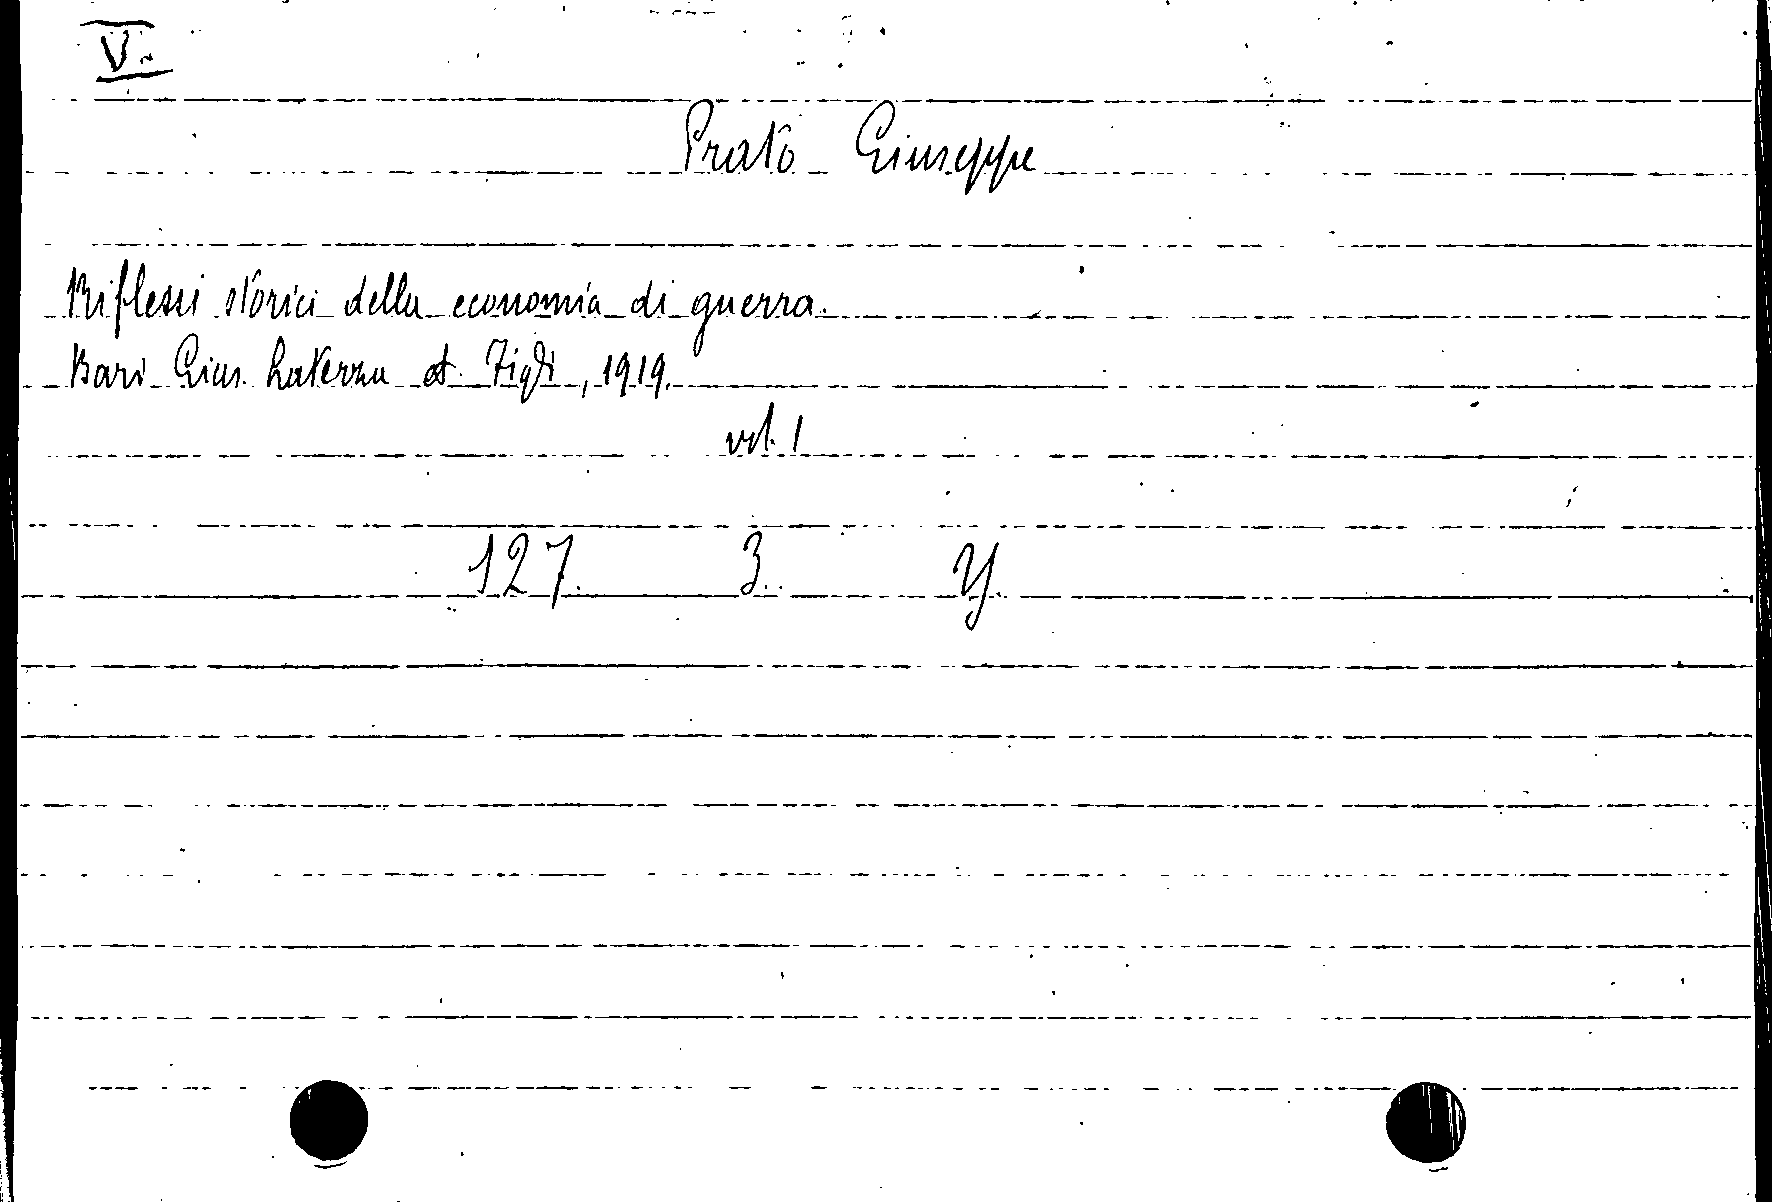 V.
Prato Giuseppe
Riflessi storici della economia di guerra.
Bari Gius. Laterza et Figli, 1919.
vol. 1
127. 3. Y.